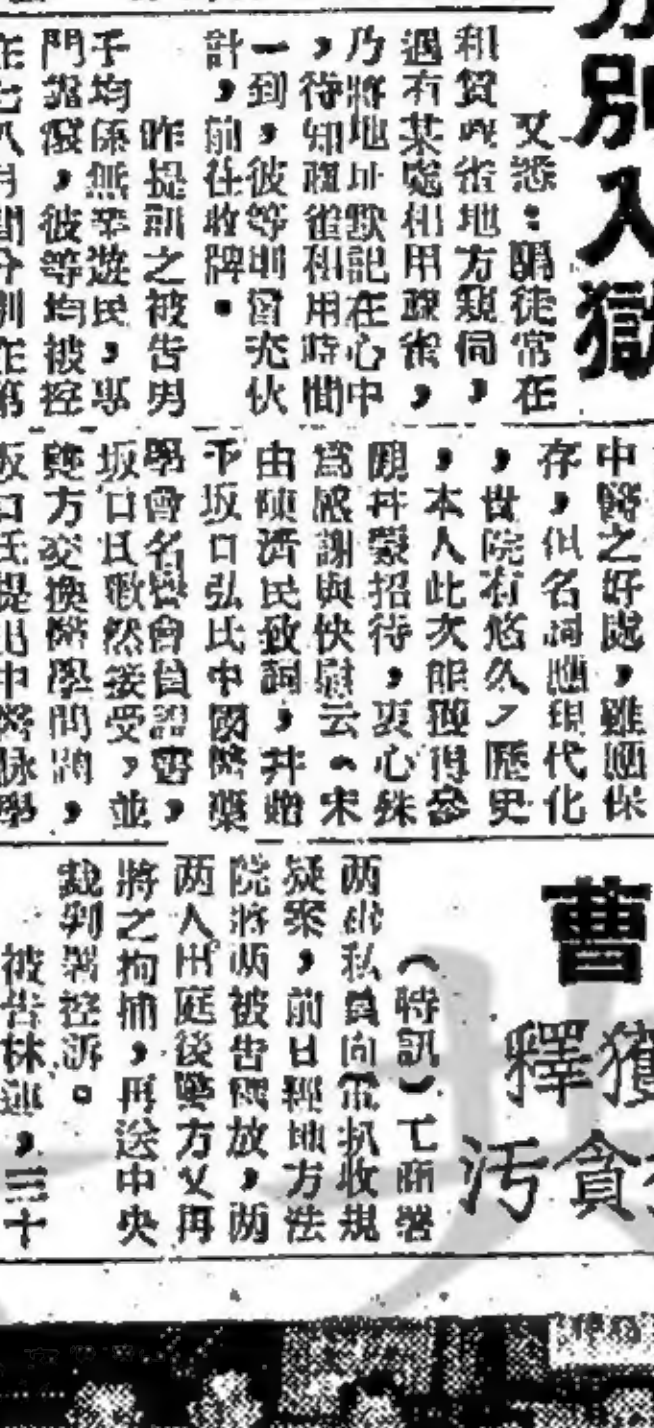 別入獄
又悉：騙徒常在
租賃麻雀地方窺伺，
遇有某處租用麻雀，
乃將地址默記在心中
，待知麻雀租用時間
一到，彼等則冒充伙
計，前往收牌。
昨提訊之被告男
子均係無業遊民，專
門靠騙，彼等均被控
中醫之好處，雖應保
存，但名詞應現代化
，貴院有悠久之歷史
，本人此次能獲得參
觀并蒙招待，衷心殊
為感謝與快慰云。宋
由陳濟民致詞，并贈
予坂口弘氏中國醫藥
學會名譽會員證書，
坂口氏歡然接受，並
雙方交換醫學問題，
坂口氏提出中醫脉學
曹
獲釋
貪污
（特訊）工商署
兩 私 員向 收規
疑案，前日經地方法
院將兩被告釋放，兩
两人出庭後警方又再
將之拘捕，再送中央
裁判署控訴。
被告林 ，三十